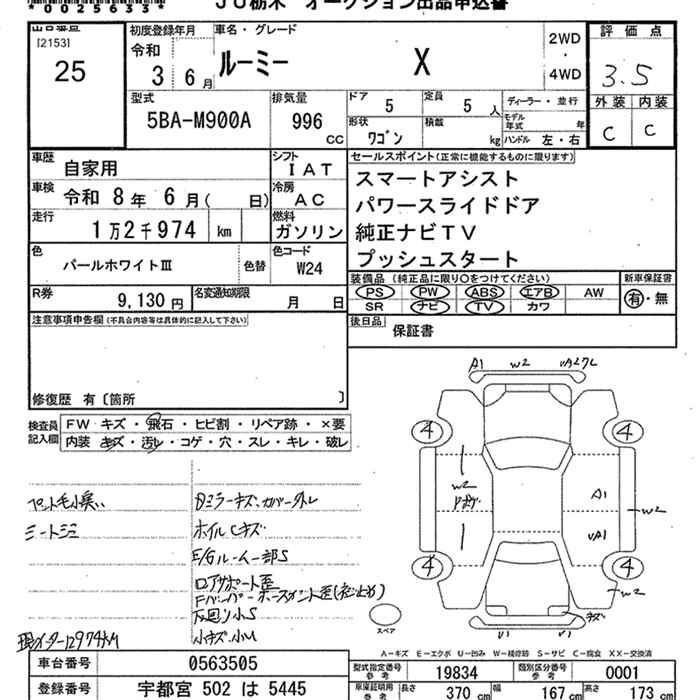 *0025633*
JU栃木 オークション出品申込書
出品番号
[2153]
25
初度登録年月
令和
3 6月
車名・グレード
ルーミー X
2WD
・
4WD
評価点
3.5
外装 内装
C C
型式
5BA-M900A
排気量
996
CC
ドア
5
定員
5 人
形状
ワゴン
積載
kg
ディーラー・並行
モデル年式 年
ハンドル 左・右
車歴
自家用
シフト
IAT
車検
令和 8年 6月( 日)
冷房
AC
走行
1万2千974 km
燃料
ガソリン
色
パールホワイトⅢ
色替
色コード
W24
R券
9,130円
名変通知期限
月 日
セールスポイント(正常に機能するものに限ります)
スマートアシスト
パワースライドドア
純正ナビTV
プッシュスタート
装備品 (純正品に限り○をつけてください)
PS PW ABS エアB AW
SR ナビ TV カワ
新車保証書
有・無
後日品
保証書
注意事項申告欄(不具合内容等は具体的に記入して下さい)
修復歴 有〔箇所 〕
検査員記入欄
FW キズ・飛石・ヒビ割・リペア跡・×要
内装 キズ・汚レ・コゲ・穴・スレ・キレ・破レ
ペット毛小臭い
シートシミ
現メーター12974KM
Dミラーキズ、カバー外レ
ホイルCキズ
E/Gルーム一部S
ロアサポート歪
下回り小S
小キズ小U
A1 W2
4 4
W2
A1
W2
VA1
4 4
W2
キズ
V1 V1
スペア
A-キズ E-エクボ U-凹み W-補修跡 S-サビ C-腐食 XX-交換済
車台番号
0563505
登録番号
宇都宮 502 は 5445
型式指定番号
参考
19834
類別区分番号
参考
0001
車庫証明用
参考
長さ 370 cm
幅 167 cm
高さ 173 cm